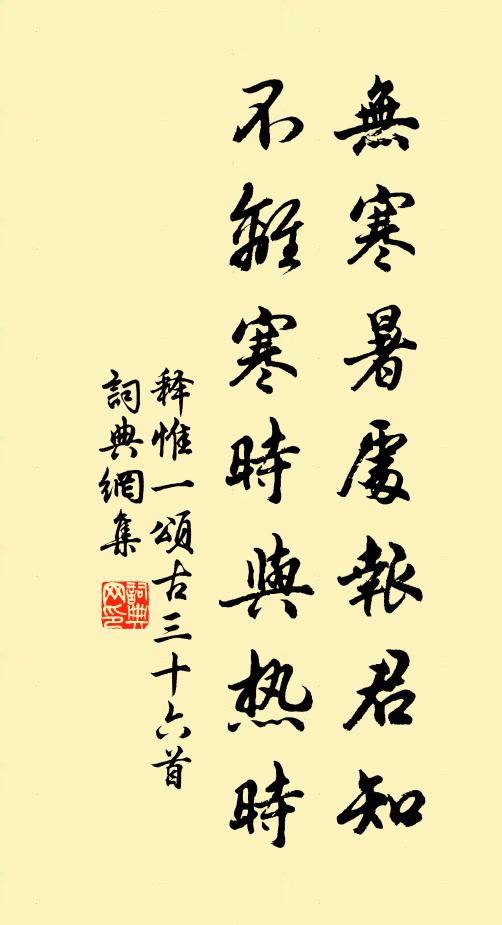 無寒暑處報君知
不離寒時與热時
释惟一頌古三十六首
詞典網集
詞典网印